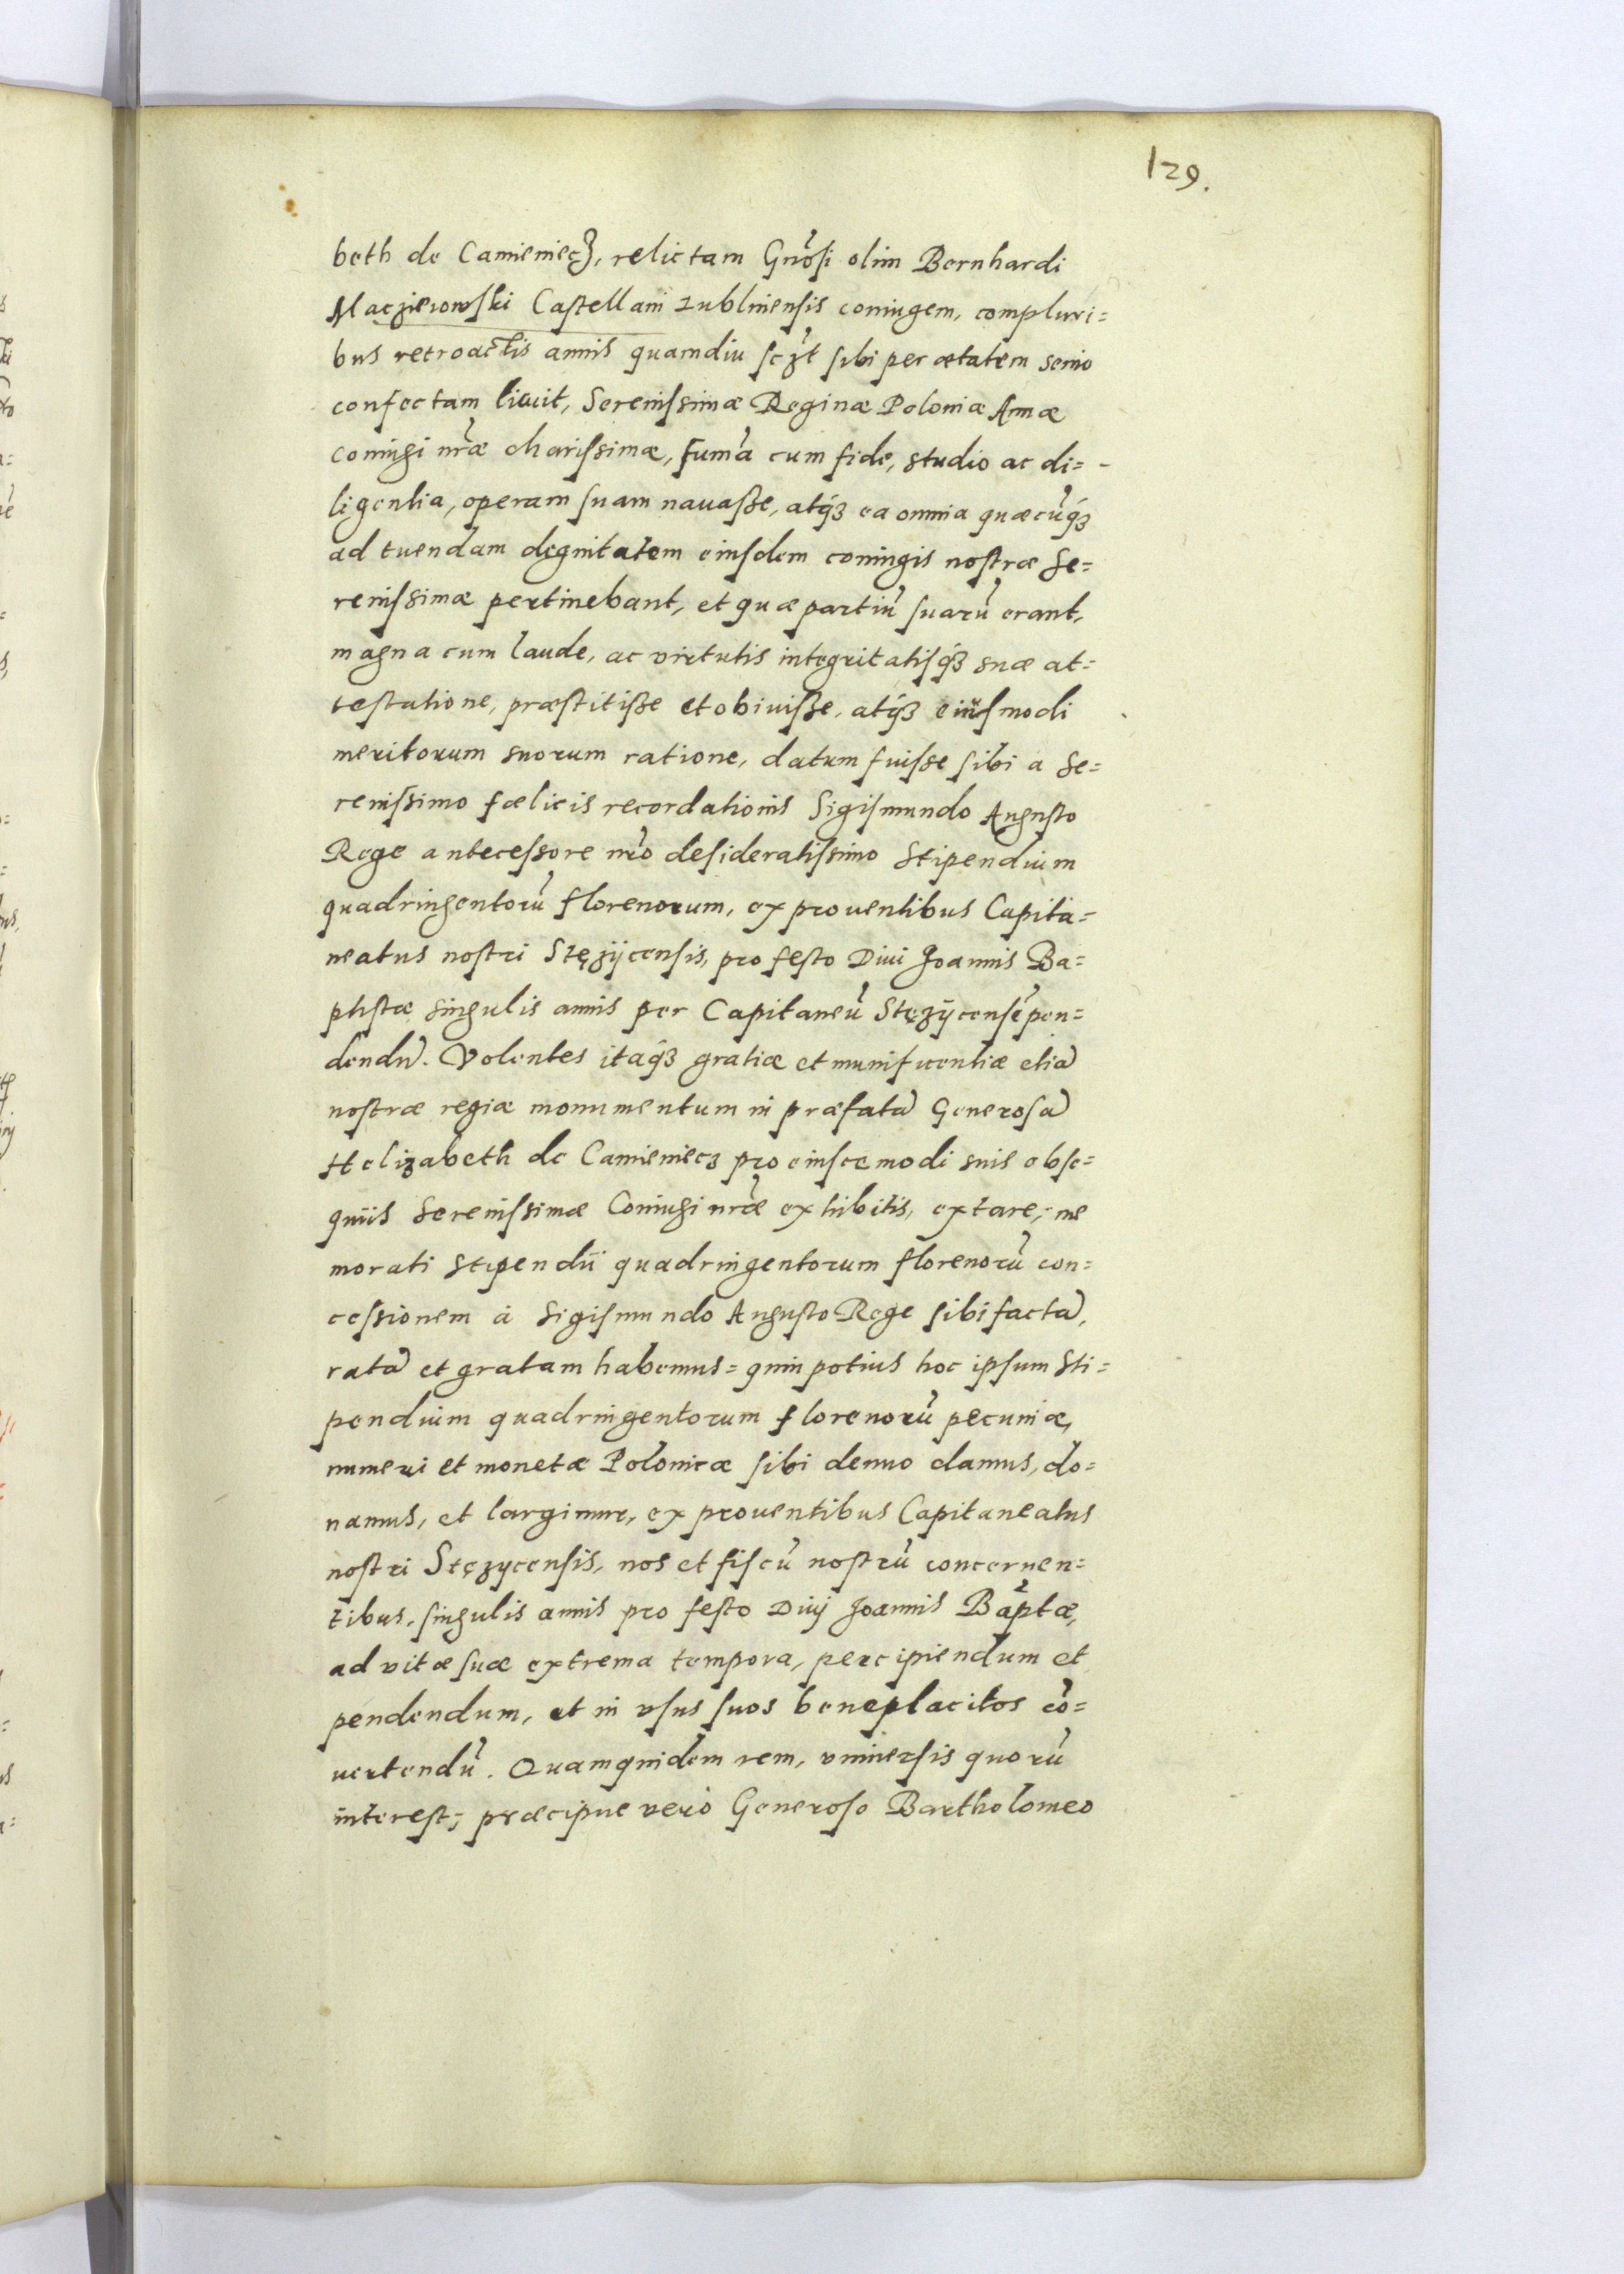 129.
beth de Camieniecz, relictam Gnõsi olim Bernhardi
Maczieiowski Castellani Lublinensis coniugem, compluri=
bus retroactis annis quamdiu sczt sibi per ætatem senio
confectam licuit, Serenissimæ Reginæ Poloniæ Annæ
coniugi nr̃æ charissimæ, sum̃a cum fide, studio ac di=
ligentia, operam suam nauasse, atq́ꝫ ea omnia quæcũq́ꝫ
ad tuendam dignitatem eiusdem coniugis nostræ Se=
renissimæ pertinebant, et quæ partiũ suarũ erant,
magna cum laude, ac virtutis integritatisq́ꝫ suæ at=
testatione, præstitisse et obiuisse, atq́ꝫ eiusmodi
meritorum suorum ratione, datum fuisse sibi a Se=
renissimo fœlicis recordationis Sigismundo Augusto
Rege antecessore nr̃o desideratissimo Stipendium
quadringentorũ florenorum, ex prouentibus Capita=
neatus nostri Stęzijcensis, pro festo Diui Joannis Ba=
ptistæ singulis annis per Capitaneũ Stęzijcensẽ pen=
dendũ. Volentes itaq́ꝫ gratiæ et munificentiæ etiã
nostræ regiæ monumentum in præfatã Generosã
Helizabeth de Camieniecz pro eiuscemodi suis obse=
quiis Serenissimæ Coniugi nr̃æ exhibitis, extare, me
morati Stipendii quadringentorum florenorũ con=
cessionem à Sigismundo Augusto Rege sibi factã,
ratã et gratam habemus= quin potius hoc ipsum Sti=
pendium quadringentorum florenorũ pecuniæ,
numeri et monetæ Polonicæ sibi denuo damus, do=
namus, et largimur, ex prouentibus Capitaneatus
nostri Stęzycensis, nos et fiscũ nostrũ concernen=
tibus, singulis annis pro festo Diuj Joannis Bap̃tæ,
ad vitæ suæ extrema tempora, percipiendum et
pendendum, et in vsus suos beneplacitos cõ=
uertendũ. Quamquidem rem, vniuersis quorũ
interest; præcipue verò Generoso Bartholomeo